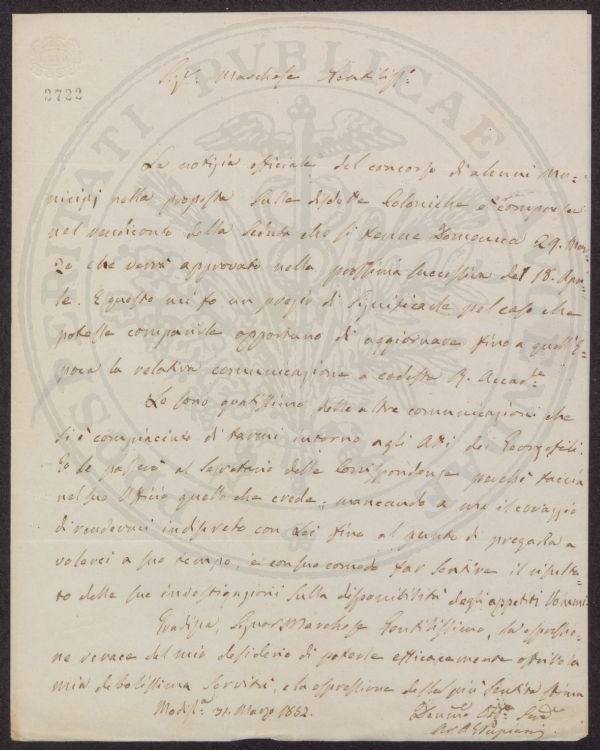 2722
Sigr. Marchese Gentiliss.
La notizia officiale del concorso di alcuni Mu-
nicipj nella proposta sulle disdette Coloniche è compresa
nel rendiconto della seduta che si tenne Domenica 29. Mar-
zo che verrà approvato nella prossima successiva del 18. Apri-
le. E questo mi fo un pregio di significarle pel caso che
potesse comparirle opportuno di aggiornare fino a quell'E-
poca la relativa comunicazione a codesta R. Accade.
Le sono gratissimo delle altre comunicazioni che
si è compiaciuto di farmi intorno agli Atti dei Georgofili.
Io le passerò al Segretario delle Corrispondenze perchè faccia
nel suo Officio quello che crede, mancando a me il coraggio
di rendermi indiscreto con Lei fino al punto di pregarla a
volerci a suo tempo e con suo comodo far sentire il risulta-
to delle sue investigazioni sulla disponibilità degli appetiti Umani.
Gradisca, Signor Marchese Gentilissimo, la espressio-
ne verace del mio desiderio di poterle efficacemente offrire la
mia debolissima servitù, e la espressione della più sentita stima
31. Marzo 1862.